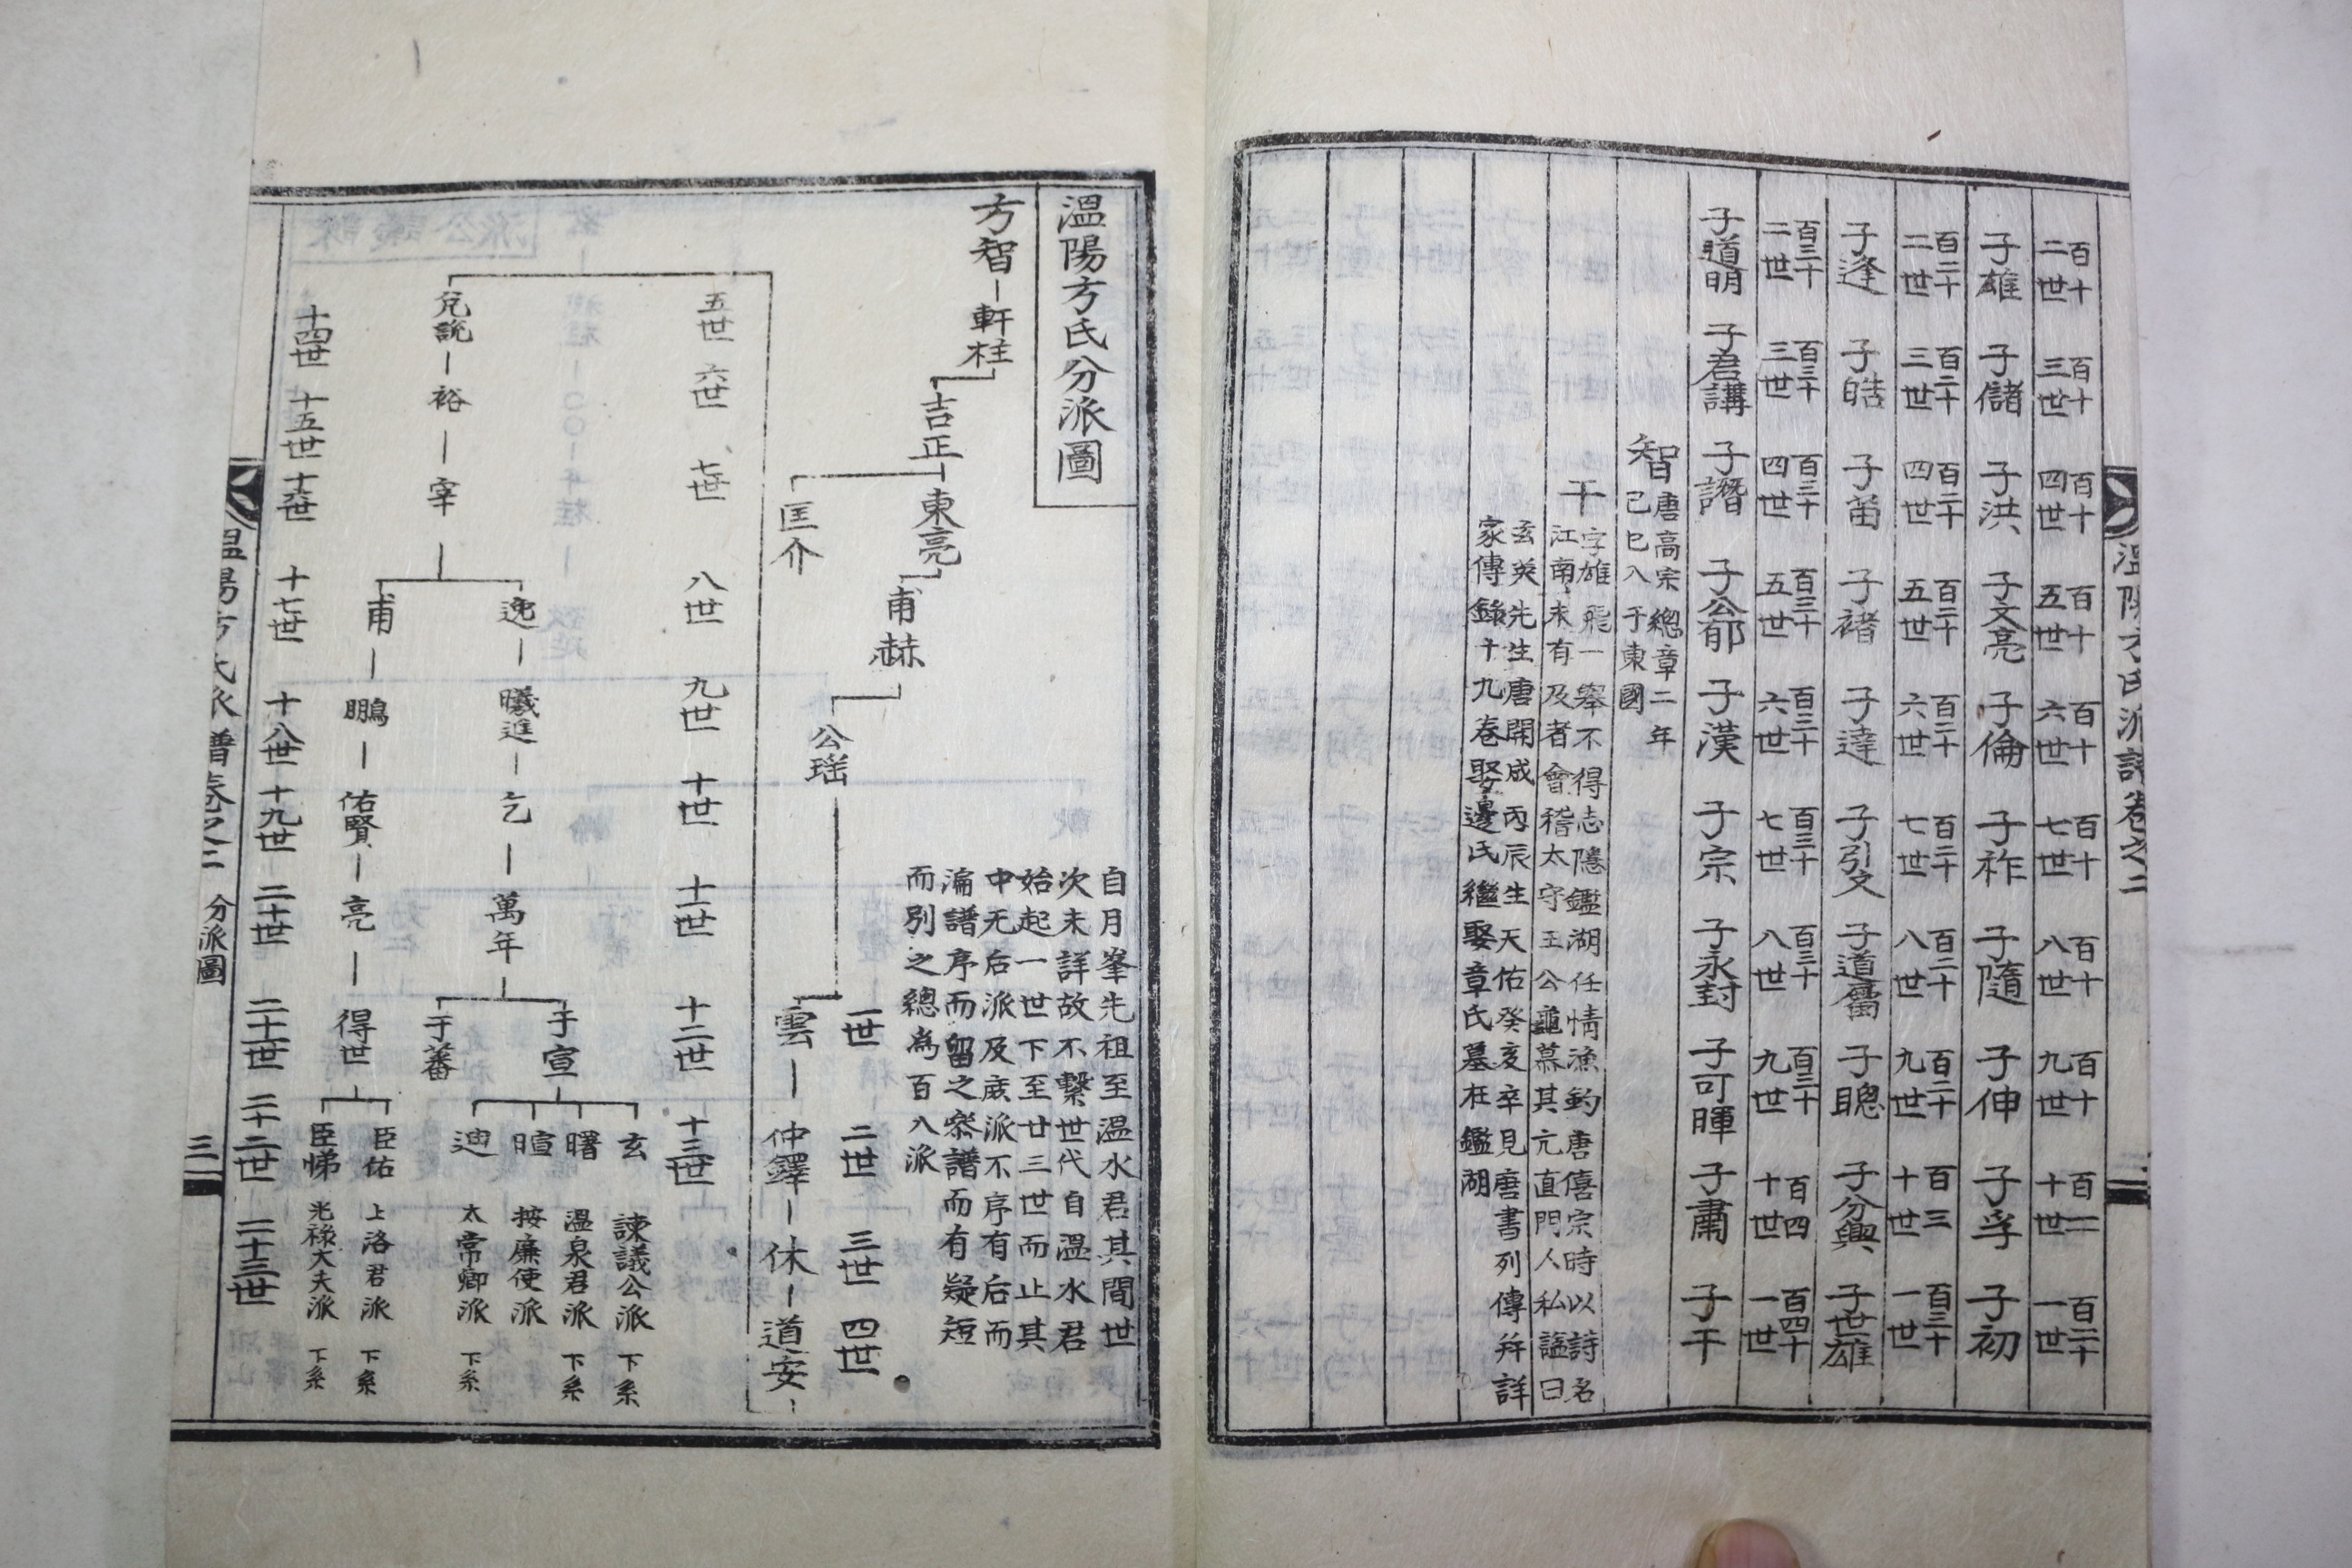 百十二世 百十三世 百十四世 百十五世 百十六世 百十七世 百十八世 百十九世 百二十世 百二十一世
子雄 子儲 子洪 子文亮 子倫 子祚 子隨 子伸 子孚 子初
百二十二世 百二十三世 百二十四世 百二十五世 百二十六世 百二十七世 百二十八世 百二十九世 百三十世 百三十一世
子逢 子晧 子苖 子褚 子達 子引文 子道 子聰 子分興 子世雄
百三十二世 百三十三世 百三十四世 百三十五世 百三十六世 百三十七世 百三十八世 百三十九世 百四十世 百四十一世
子道明 子君講 子譖 子公郁 子漢 子宗 子永封 子可暉 子肅 子干
智 唐高宗總章二年
己巳入于東國
干 字雄飛一舉不得志隱鑑湖任情漁釣唐僖宗時以詩名
江南未有及者會稽太守王公龜慕其亢直門人私謚曰
玄英先生唐開成丙辰生天佑癸亥卒見唐書列傳幷詳
家傳錄十九卷娶邊氏繼娶章氏墓在鑑湖
溫陽方氏派譜卷之二
溫陽方氏分派圖
方智 軒柱
吉正
東亮 匡介
甫赫
公瑤
自月峯先祖至溫水君其間世
次未詳故不繫世代自溫水君
始起一世下至廿三世而止其
中无后派及庶派不序有后而
漏譜序而留之參譜而有疑短
而別之總爲百八派
一世 二世 三世 四世
雲 仲鐸 休 道安
五世 六世 七世 八世 九世 十世 十一世 十二世 十三世
兌說 裕 宰
逸 曦進 乞 萬年
子宣 于蕃
玄 諫議公派 下系
曙 溫泉君派 下系
暄 按廉使派
迪 太常卿派 下系
甫 鵬 佑賢 亮 得世
臣佑 上洛君派 下系
臣悌 光祿大夫派 下系
十四世 十五世 十六世 十七世 十八世 十九世 二十世 二十一世 二十二世 二十三世
溫陽方氏派譜卷之二 分派圖 三